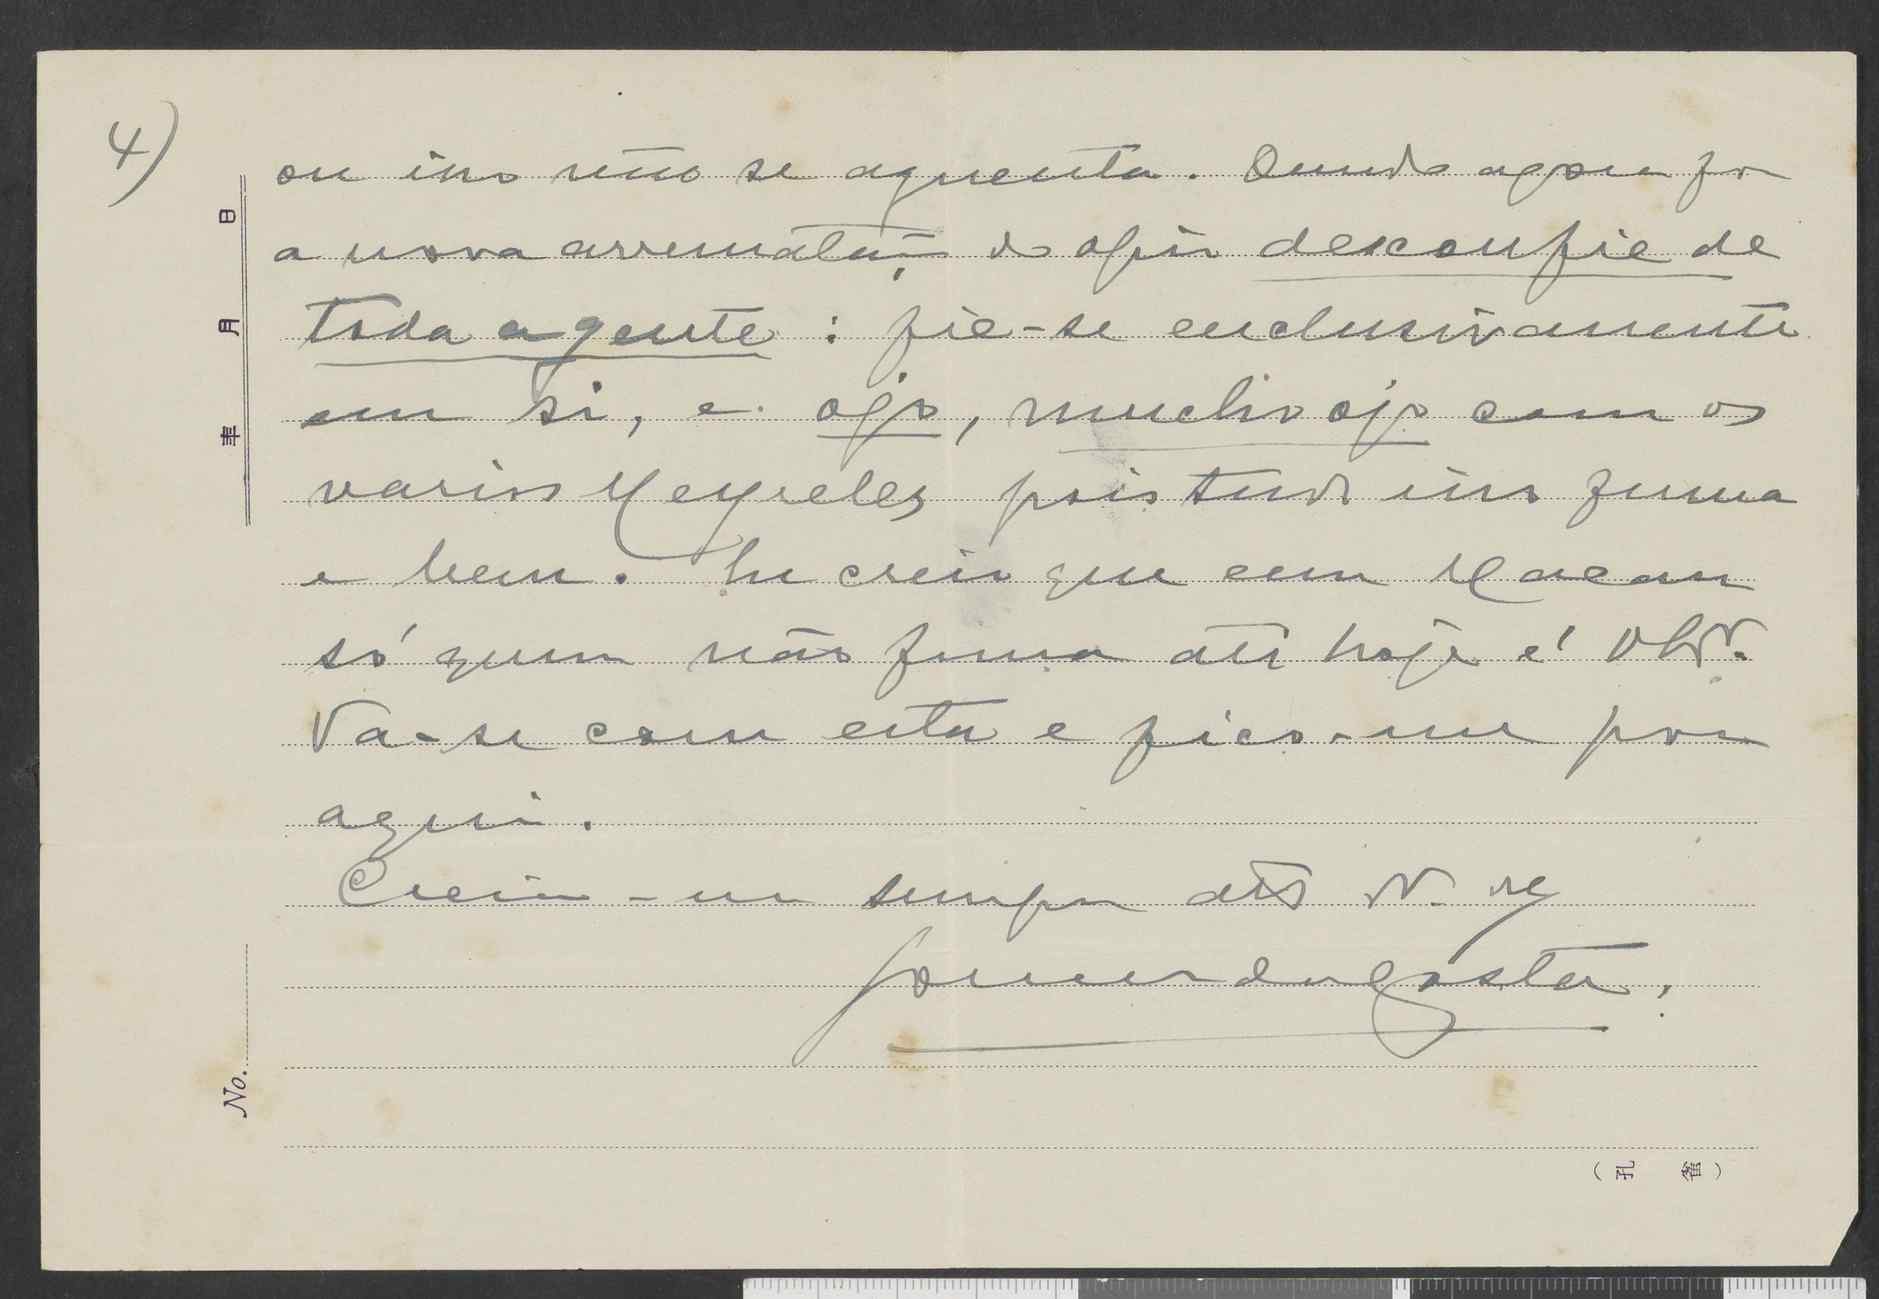 4)
ou isso não se aguenta. Quando agora for
a nova arrematação do opio desconfie de
toda a gente : fie-se exclusivamente
em si, e ojo, mucho ojo com os
varios Meyreles pois tudo isso fuma
e bem. Eu creio que em Macau
só quem não fuma até hoje é
Va-se com esta e fico-me por
aqui.
Creia-me sempre
Gomes da Costa.
年 月 日
No.
(孔 雀)